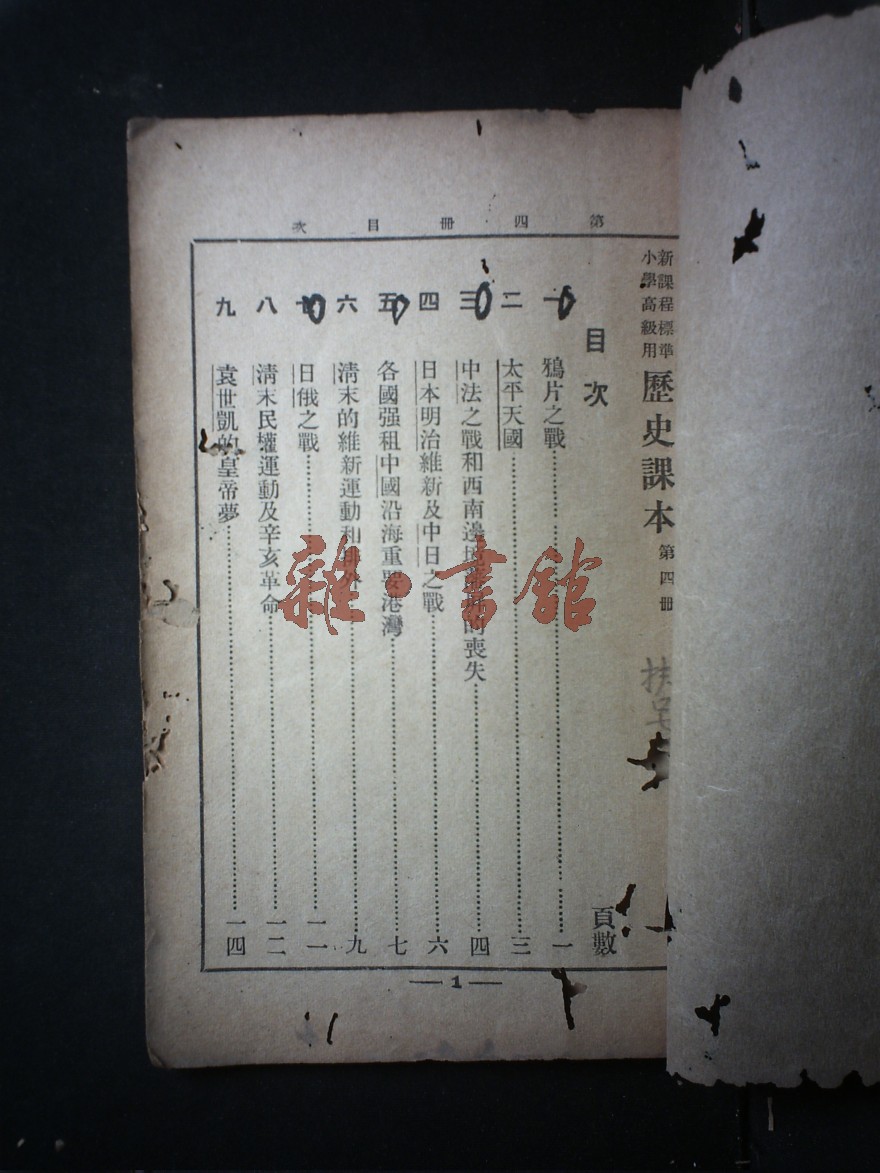 第四冊目次
新課程標準
小學高級用
歷史課本 第四冊
目次 頁數
一 鴉片之戰 一
二 太平天國 三
三 中法之戰和西南邊 的喪失 四
四 日本明治維新及中日之戰 六
五 各國强租中國沿海重要港灣 七
六 清末的維新運動和排外 九
七 日俄之戰 一一
八 清末民權運動及辛亥革命 一二
九 袁世凱的皇帝夢 一四
— 1 —
雜·書館